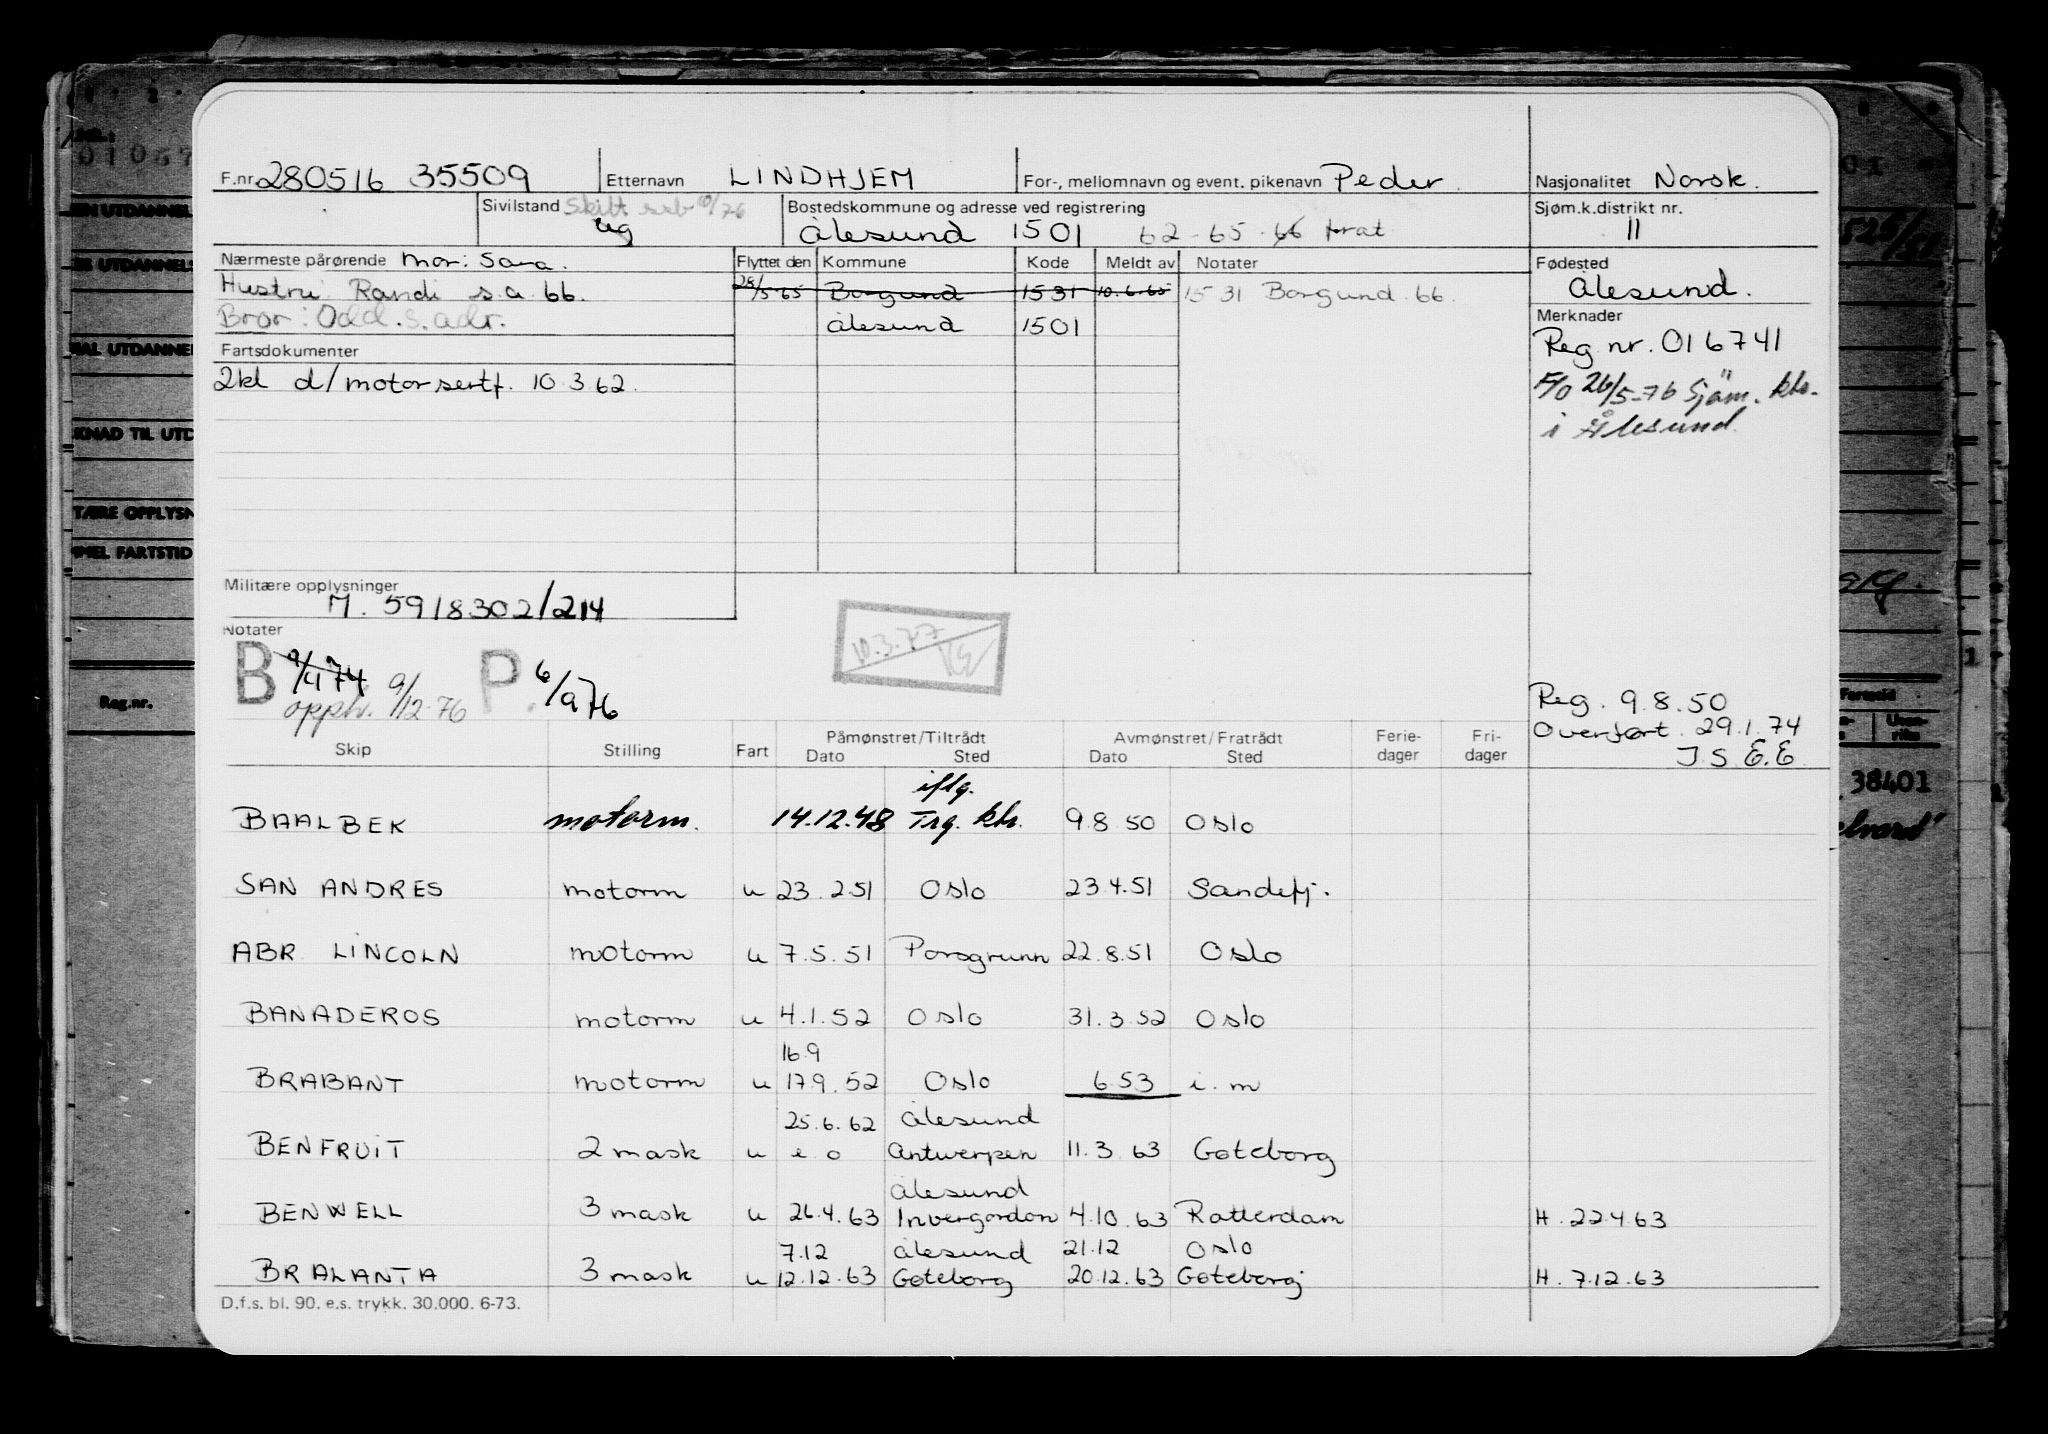 F.nr. 280516 35509 Etternavn LINDHJEM For-, mellomnavn og event. pikenavn Peder. Nasjonalitet Norsk.
Sivilstand Skilt ssb 10/76 ug Bostedskommune og adresse ved registrering Sjøm.k.distrikt nr.
Ålesund 1501 62-65-66 11
Nærmeste pårørende Mor: Sara. Flyttet den Kommune Kode Meldt av Notater Fødested
Hustru Randi s.a. 66. 28/5 65 Borgund 1531 10.6.65 1531 Borgund 66. Ålesund.
Bror: Odd. s. adr. Ålesund 1501 Merknader
Fartsdokumenter Reg nr. 016741
2kl d/motorsertf. 10.3 62. F/O 26/5-76 Sjøm. ktr.
i Ålesund.
Militære opplysninger
M. 5918302/214
Notater
B 9/4 74 P. 6/9 76 10.3.77
opph. 9/12-76 Reg. 9.8.50
Overført. 29.1.74
J.S E.E
Skip Stilling Fart Påmønstret/Tiltrådt Avmønstret/Fratrådt Ferie- Fri-
Dato Sted Dato Sted dager dager
iflg.
BAALBEK motorm. 14.12.48 Trg. ktr. 9.8 50 Oslo
SAN ANDRES motorm u 23.2.51 Oslo 23.4.51 Sandefj.
ABR LINCOLN motorm u 7.5.51 Porsgrunn 22.8.51 Oslo
BANADEROS motorm u 4.1.52 Oslo 31.3.52 Oslo
16.9
BRABANT motorm u 17.9.52 Oslo 6.53 i.m
25.6.62 Ålesund
BENFRUIT 2 mask u e.o Antwerpen 11.3.63 Gøteborg
Ålesund
BENWELL 3 mask u 26.4.63 Invergordon 4.10.63 Rotterdam H. 22.4.63
7.12 Ålesund 21.12 Oslo
BRALANTA 3 mask u 12.12.63 Gøteborg 20.12.63 Gøteborg H. 7.12.63
D.f.s. bl. 90. e.s. trykk. 30.000. 6-73.
Reg.nr.
38401